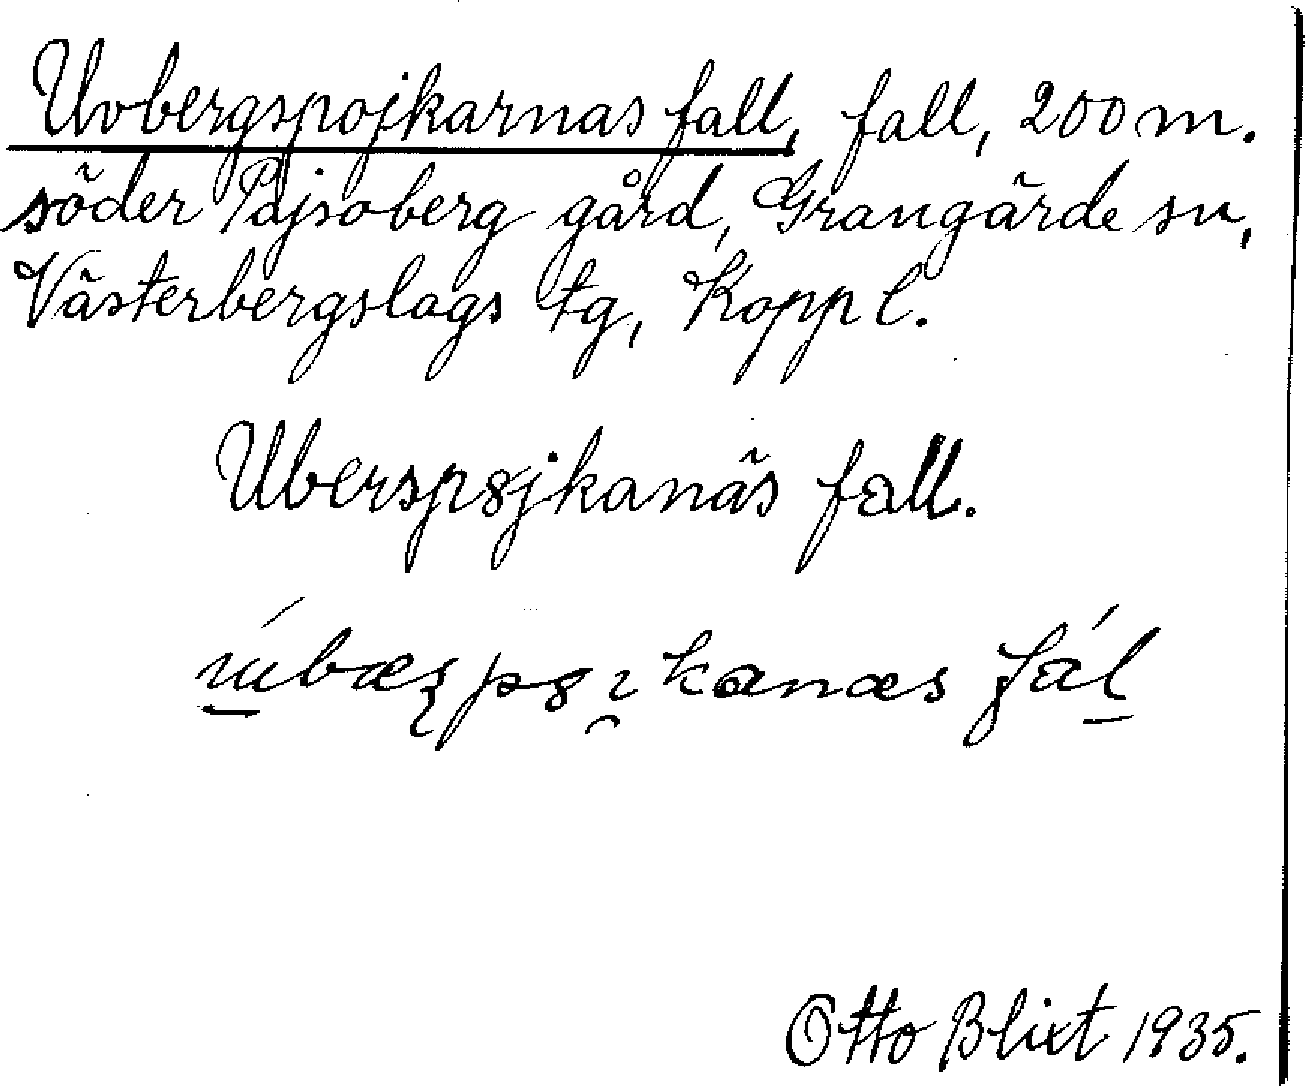 Uvbergspojkarnas fall, fall, 200 m.
söder Pajsoberg gård, Grangärde sn,
Västerbergslags tg, Kopp l.
Uberspȣjkanäs fall.
Otto Blixt 1935.